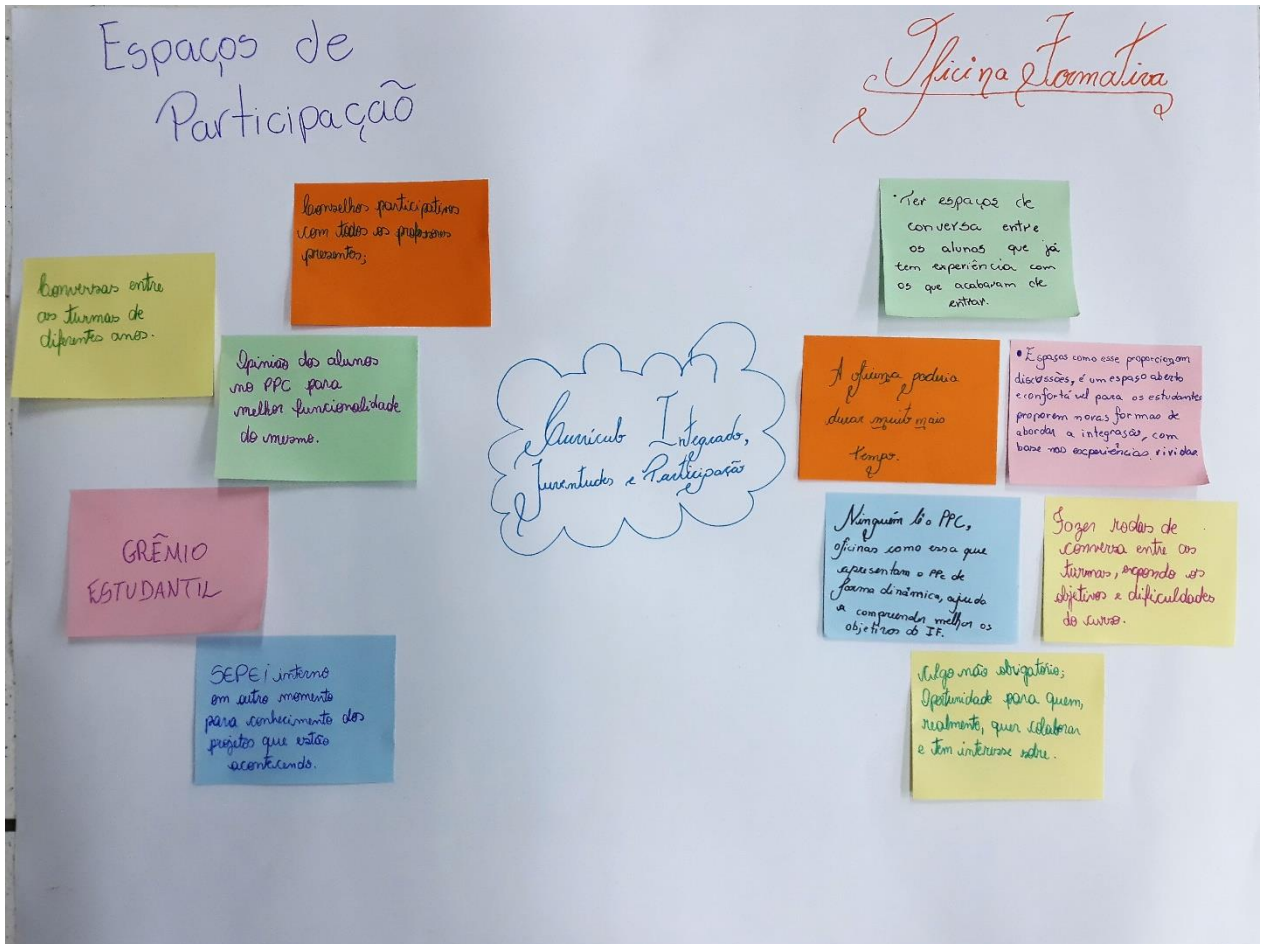 Espaços de
Participação
Oficina Formativa
Conselhos participativos
com todos os professores
presentes;
Conversas entre
as turmas de
diferentes anos.
Opinião dos alunos
no PPC para
melhor funcionalidade
do mesmo.
GRÊMIO
ESTUDANTIL
SEPEI interno
em outro momento
para conhecimento dos
projetos que estão
acontecendo.
Currículo Integrado,
Juventudes e Participação
• Ter espaços de
conversa entre
os alunos que já
tem experiência com
os que acabaram de
entrar.
A oficina poderia
durar muito mais
tempo.
• Espaços como esse proporcionam
discussões, é um espaço aberto
e confortável para os estudantes
proporem novas formas de
abordar a integração, com
base nas experiências vividas
Ninguém lê o PPC,
oficinas como essa que
apresentam o PPC de
forma dinâmica, ajuda
a compreender melhor os
objetivos do IF.
Fazer rodas de
conversa entre as
turmas, expondo os
objetivos e dificuldades
do curso.
Algo não obrigatório;
Oportunidade para quem,
realmente, quer colaborar
e tem interesse sobre.